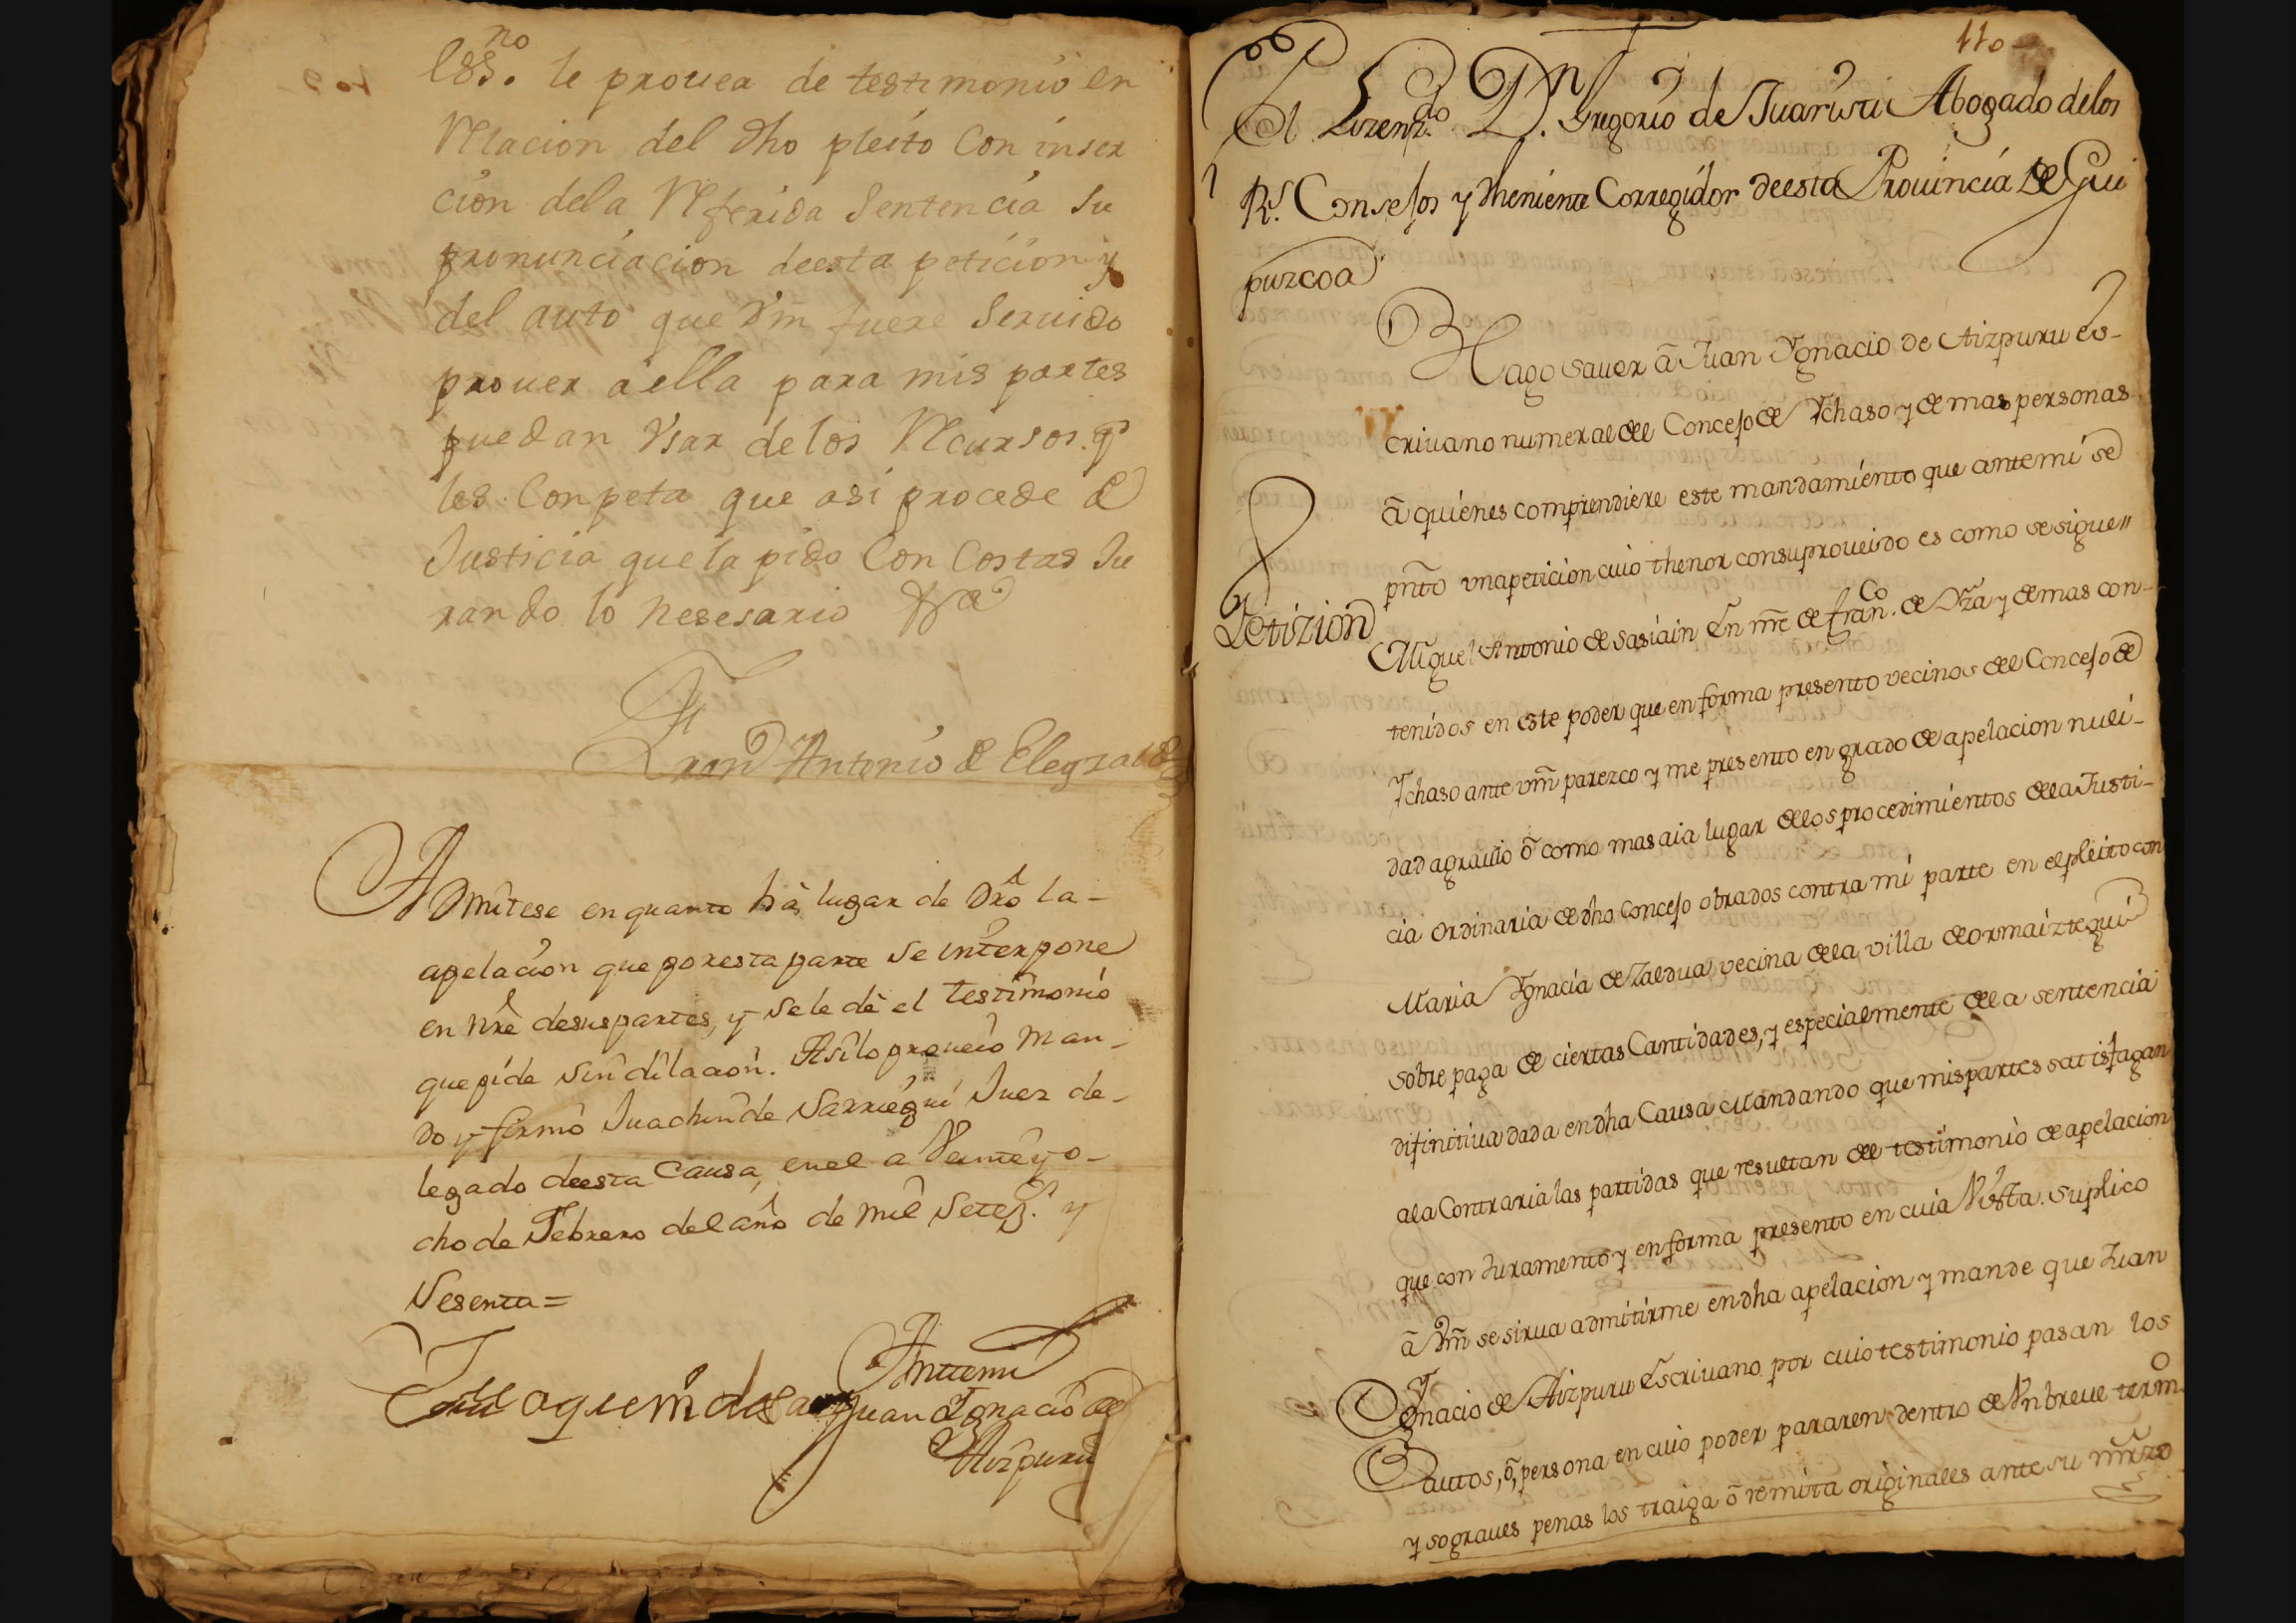 essno. le prouea de testimonio en
Relacion del dho pleito Con inser
cion dela Referida Sentencia su
pronunciacion deesta peticion y
del auto que Vm fuere Seruido
prouer aella para mis partes
puedan Vsar delos Recursos qe
les Conpeta que asi procede de
Justicia que la pido Con Costas Ju
rando lo nesesario &a
Antonio de Elegzalde
Admitese en quanto hà lugar de dro la-
apelacion que por esta parte se interpone
en nre desus partes, y se le dè el testimonio
que pide sin dilacion. Asi lo proueió man-
do y firmó Juachin de Sarriegui Juez de-
legado deesta Causa, en el a Veinte y o-
cho de Febrero del año de mil setezs. y
Sesenta=
Juaquin de
Antemi
Juan Ignacio de
Aizpuru
110
El Lizenzdo. Dn. Gregorio de Juaristi Abogado delos
Rs. Consejos y theniente Corregidor deesta Prouincia de Gui
puzcoa
Hago sauer â Juan Ygnacio de Aizpuru es-
criuano numeral del Concejo de Ychaso y demas personas
â quienes comprendiere este mandamiento que antemi se
pnto vna peticion cuio thenor con su proueido es como se sigue"
Petizion
Miguel Antonio de Sasiain En nre de franco. de Vra y demas con-
tenidos en este poder que en forma presento vecinos del Concejo de
Ychaso ante vm parezco y me presento en grado de apelacion nuli-
dad agrauio ô como mas aia lugar delos procedimientos dela Justi-
cia ordinaria de dho Concejo obrados contra mi parte en el pleito con
Maria Ygnacia de Zaldua vecina dela villa de ormaiztegui
sobre paga de ciertas Cantidades, y especialmente dela sentencia
difinitiua dada en dha Causa mandando que mis partes satisfagan
ala Contraria las partidas que resultan del testimonio de apelacion
que con Juramento y en forma presento en cuia Vista. suplico
â Vm se sirua admitirme en dha apelacion y mande que Juan
Ygnacio de Aizpuru Escriuano por cuio testimonio pasan los
autos, ô, persona en cuio poder pararen dentro de Vn breue termo
y so graues penas los traiga ô remita originales ante su mrzd